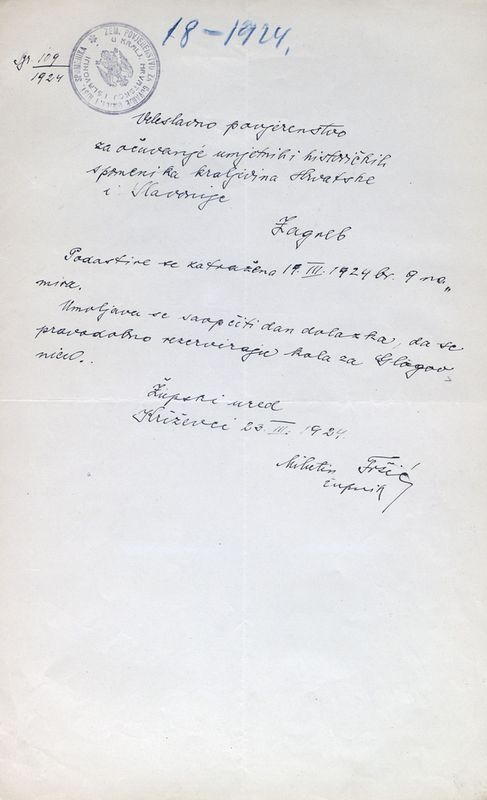 18-1924.
109
1924
ZEM. POVJERENSTVO ZA ČUVANJE UMJET. I HIST. SPOMENIKA
U KRALJ. HRVATSKOJ I SLAVONIJI
Veleslavno povjerenstvo
za očuvanje umjetnih i historičkih
spomenika kraljevina Hrvatske
i Slavonije
Zagreb
Podastire se zatražena 17. III. 1924 br. 9 na„
mira.
Umoljava se saopćiti dan dolazka, da se
pravodobno rezerviraju kola za Glogov„
nicu.
Župski ured
Križevci 23. III. 1924.
Milutin Fršić
župnik